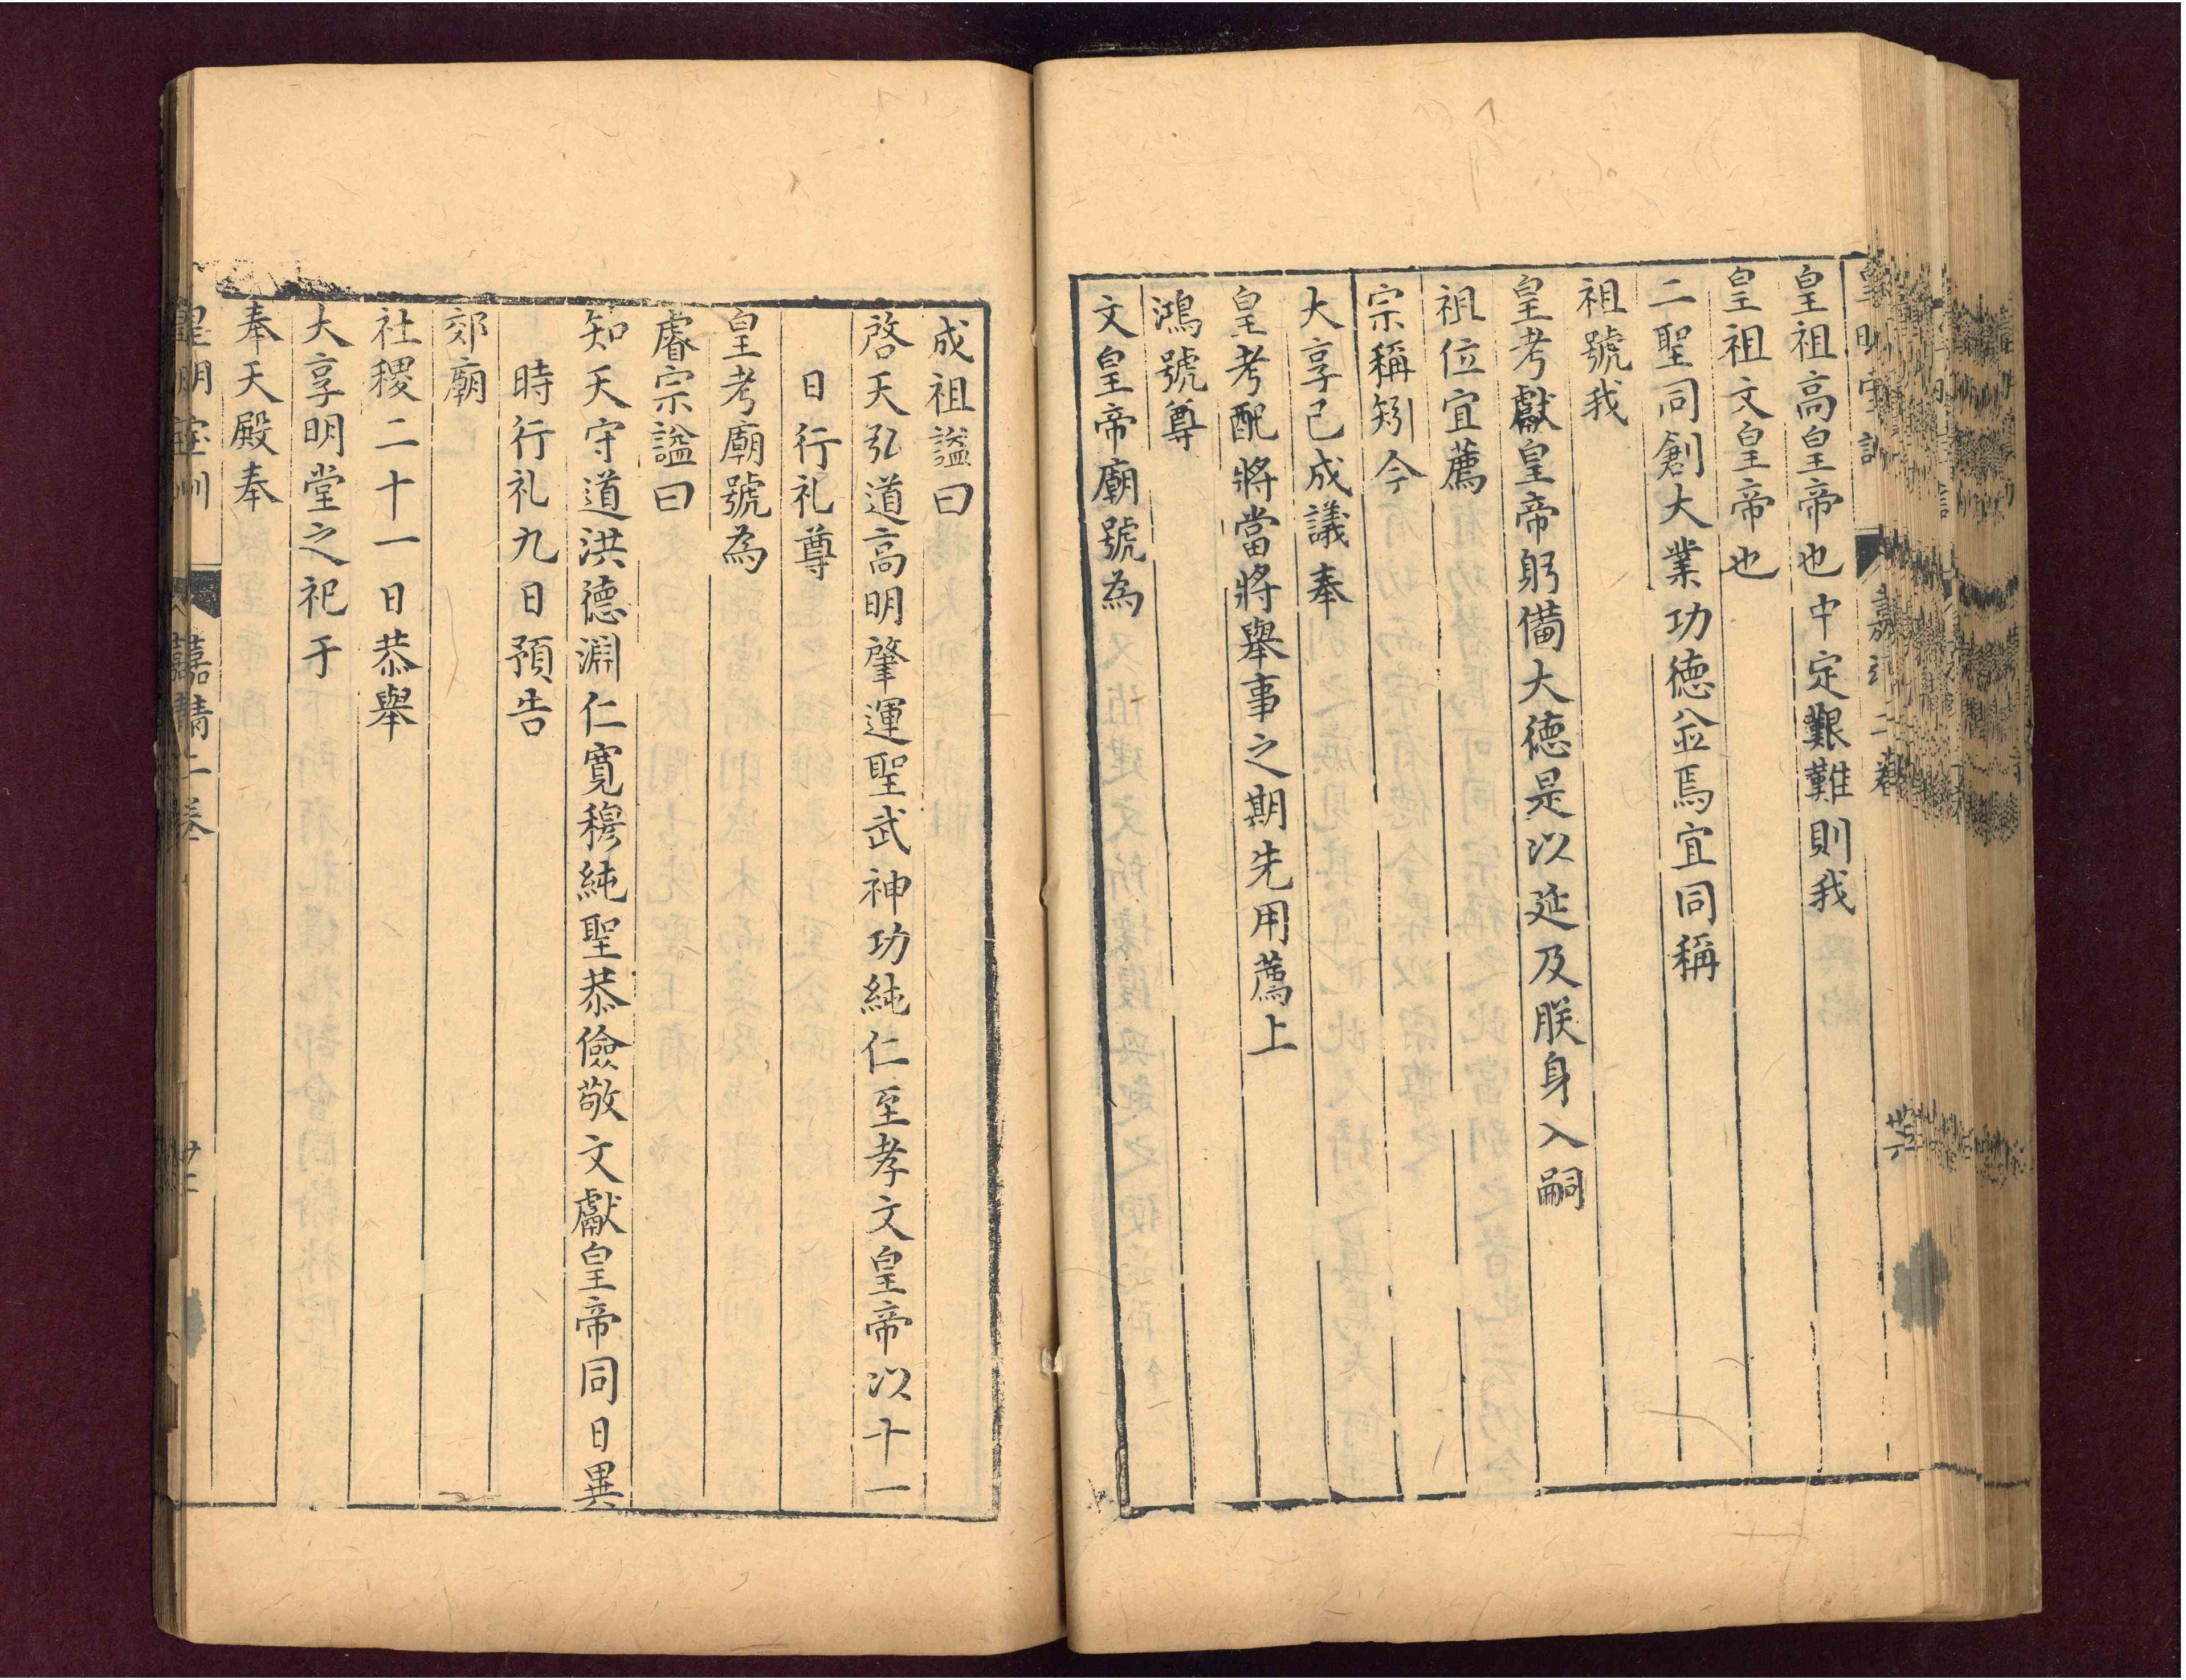 皇祖高皇帝也中定艱難則我
皇祖文皇帝也
二聖同創大業功德並焉宜同稱
祖號我
皇考獻皇帝躬備大德是以延及朕身入嗣
祖位宜薦
宗稱矧今
大享已成議奉
皇考配將當將舉事之期先用薦上
鴻號尊
文皇帝廟號為
成祖謚曰
啓天弘道高明肇運聖武神功純仁至孝文皇帝以十一
日行礼尊
皇考廟號為
睿宗謚曰
知天守道洪德淵仁寬穆純聖恭儉敬文獻皇帝同日異
時行礼九日預告
郊廟
社稷二十一日恭舉
大享明堂之祀于
奉天殿奉
皇明宝訓 嘉靖二卷